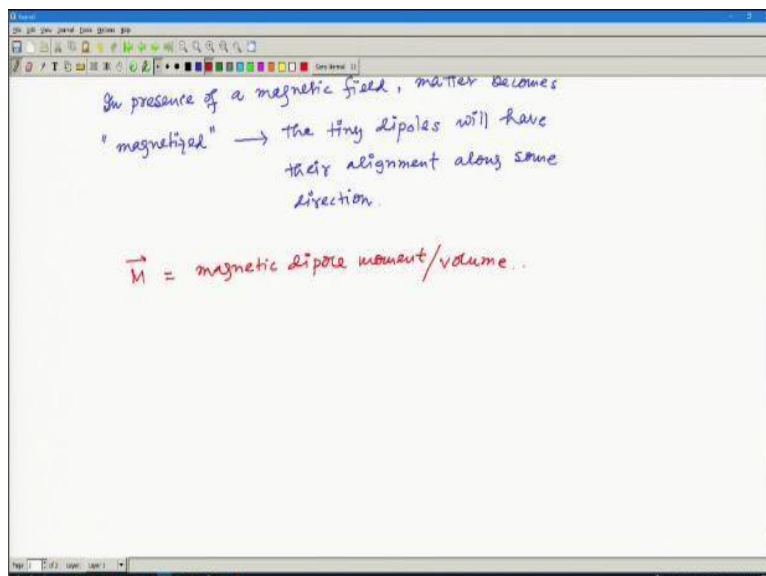 Xournal
File Edit View Journal Tools Options Help
Sans Normal 12
In presence of a magnetic field, matter becomes
"magnetized" → the tiny dipoles will have
their alignment along some
direction.
M⃗ = magnetic dipole moment/volume..
Page 2 of 2 Layer: Layer 1